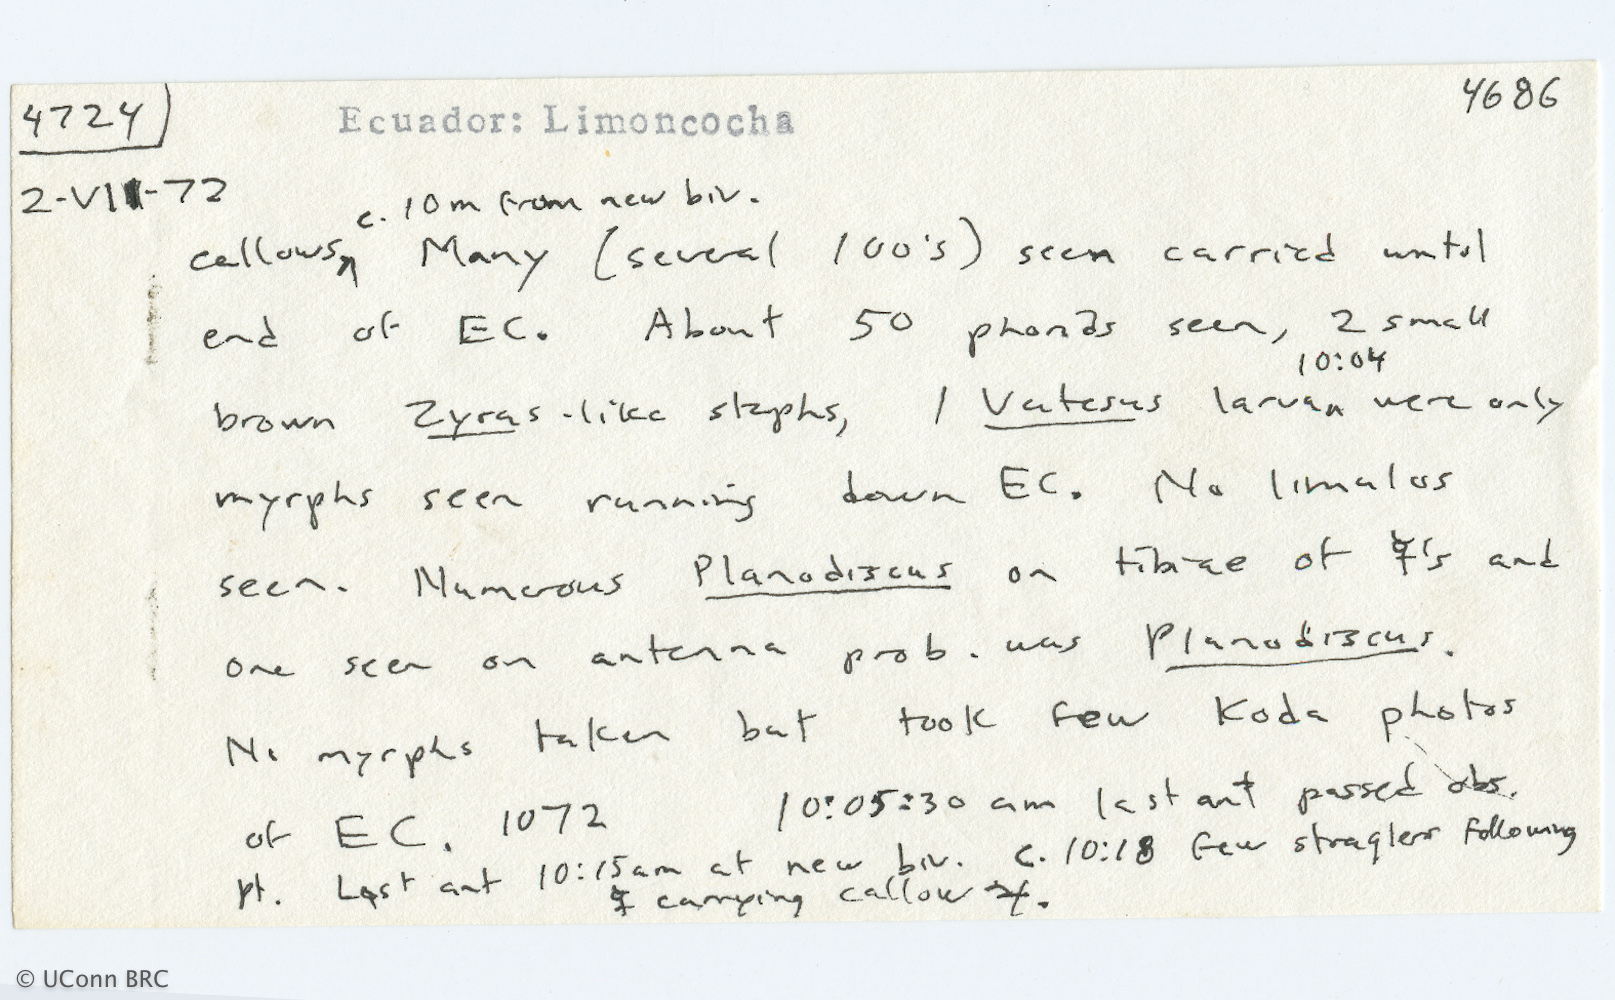 4724
Ecuador: Limoncocha
4686
2-VII-72
c. 10m from new biv.
callows, Many (several 100's) seen carried until
end of EC. About 50 phorids seen, 2 small
10:04
brown Zyras-like staphs, 1 Vatesus larvan were only
myrphs seen running down EC. No limulos
seen. Numerous Planodiscus on tibiae of ☿'s and
one seen on antenna prob. was Planodiscus.
No myrphs taken but took few Koda photos
of EC. 1072 10:05:30 am last ant passed obs.
pt. Last ant 10:15am at new biv. c. 10:18 few straglers following
☿ carrying callow ☿.
© UConn BRC